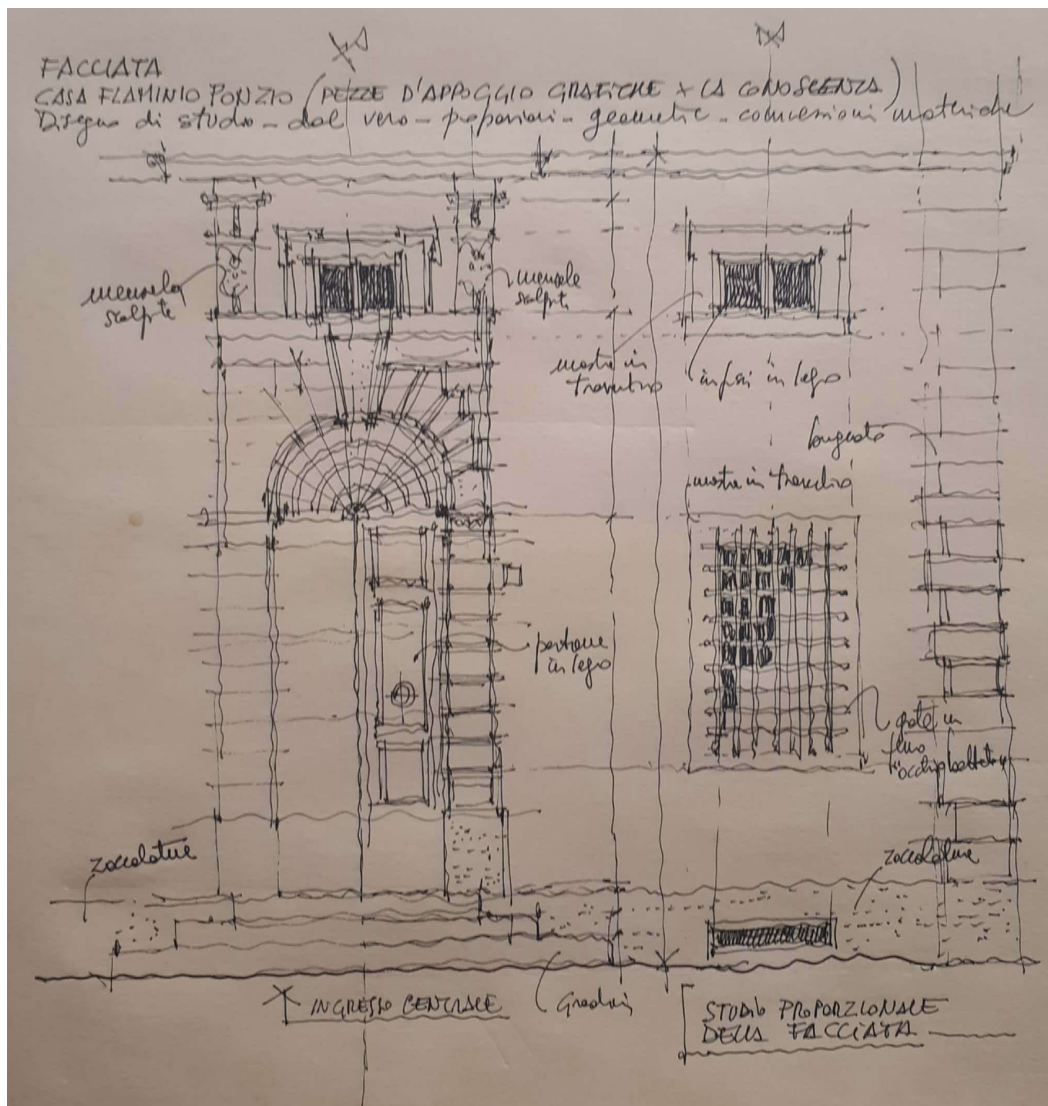 FACCIATA
CASA FLAMINIO PONZIO (PEZZE D'APPOGGIO GRAFICHE X LA CONOSCENZA)
Disegno di studio - dal vero - proporzioni - geometrie - connessioni materiche
mensola
scolpite
mensole
scolpite
mostre in
travertino
infissi in legno
bugnato
mostre in travertino
portone
in legno
grate in
ferro
zoccolature
zoccolature
INGRESSO CENTRALE
Gradini
STUDIO PROPORZIONALE
DELLA FACCIATA